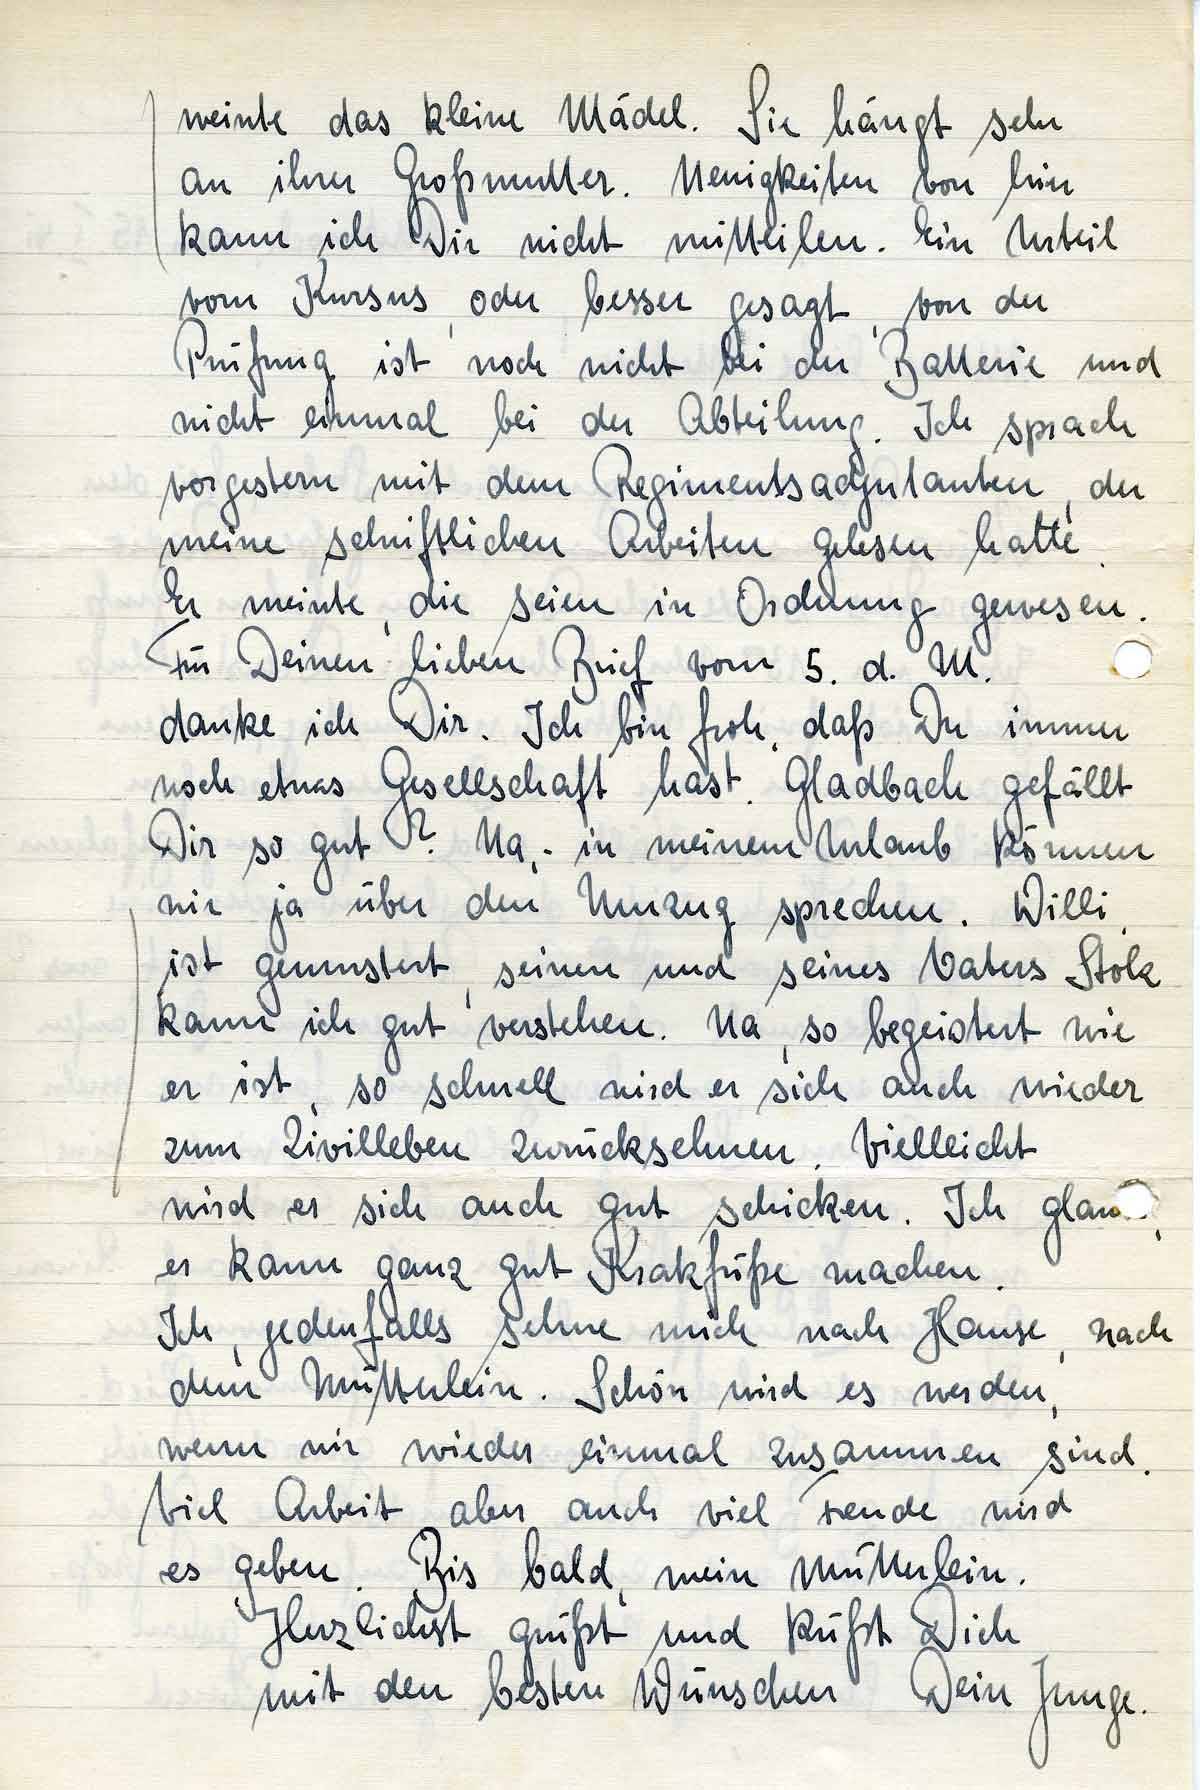 weinte das kleine Mädel. Sie hängt sehr
an ihrer Großmutter. Neuigkeiten von hier
kann ich Dir nicht mitteilen. Ein Urteil
vom Kursus, oder besser gesagt, von der
Prüfung ist noch nicht bei der Batterie und
nicht einmal bei der Abteilung. Ich sprach
vorgestern mit dem Regimentsadjutanten, der
meine schriftlichen Arbeiten gelesen hatte.
Er meinte, die seien in Ordnung gewesen.
Für Deinen lieben Brief vom 5. d. M.
danke ich Dir. Ich bin froh, daß Du immer
noch etwas Gesellschaft hast. Gladbach gefällt
Dir so gut? Na,- in meinem Urlaub können
wir ja über den Umzug sprechen. Willi
ist gemustert, seinen und seines Vaters Stolz
kann ich gut verstehen. Na, so begeistert wie
er ist, so schnell wird er sich auch wieder
zum Zivilleben zurücksehnen. Vielleicht
wird er sich auch gut schicken. Ich glau,
er kann ganz gut Krakfüße machen.
Ich, jedenfalls sehne mich nach Hause, nach
dem Mütterlein. Schön wird es werden,
wenn wir wieder einmal zusammen sind.
Viel Arbeit aber auch viel Freude wird
es geben. Bis bald, mein Mütterlein.
Herzlichst grüßt und küßt Dich
mit den besten Wünschen Dein Junge.